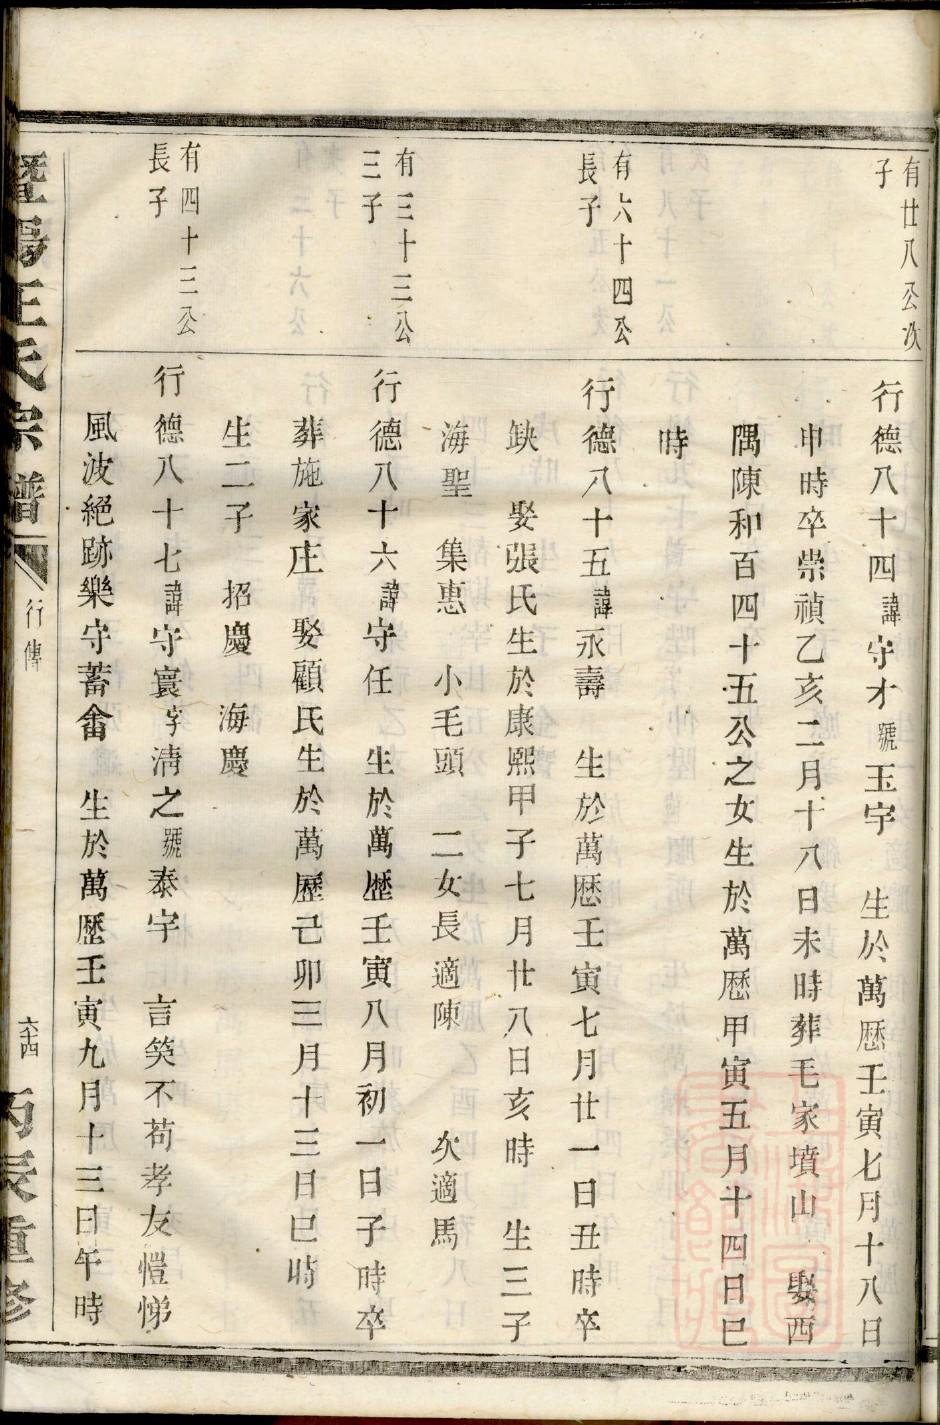 有廿八公次
子
行德八十四諱守才號玉宇 生於萬歷壬寅七月十八日
申時卒崇禎乙亥二月十八日未時葬毛家墳山 娶西
隅陳和百四十五公之女生於萬歷甲寅五月十四日巳
時
有六十四公
長子
行德八十五諱永壽 生於萬歷壬寅七月廿一日丑時卒
缺 娶張氏生於康熙甲子七月廿八日亥時 生三子
海聖 集惠 小毛頭 二女長適陳 次適馬
有三十三公
三子
行德八十六諱守任 生於萬歷壬寅八月初一日子時卒
葬施家庄 娶顧氏生於萬歷己卯三月十三日巳時
生二子 招慶 海慶
有四十三公
長子
行德八十七諱守寰字清之號泰宇 言笑不苟孝友愷悌
風波絕跡樂守蓄畬 生於萬歷壬寅九月十三日午時
暨陽王氏宗譜
行傳
六十四
丙辰重修